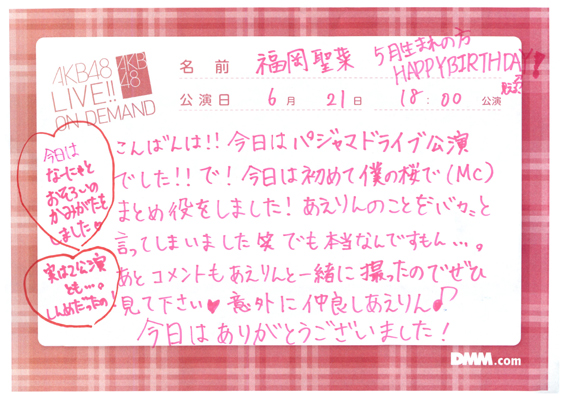 AKB48
LIVE!!
ON DEMAND
AKB
48
名前 福岡聖菜
5月生まれの方
HAPPYBIRTHDAY!
公演日 6月21日 18:00公演
こんばんは!!今日はパジャマドライブ公演
でした!!で!今日は初めて僕の桜で(MC)
まとめ役をしました!あえりんのことをバカと
言ってしまいました笑 でも本当なんですもん…。
あとコメントもあえりんと一緒に撮ったのでぜひ
見て下さい♥意外に仲良しあえりん♪
今日はありがとうございました!
今日は
なーにゃと
おそろいの
かみがたも
しました
実は2公演
とも…。
しんめだったの!
DMM.com